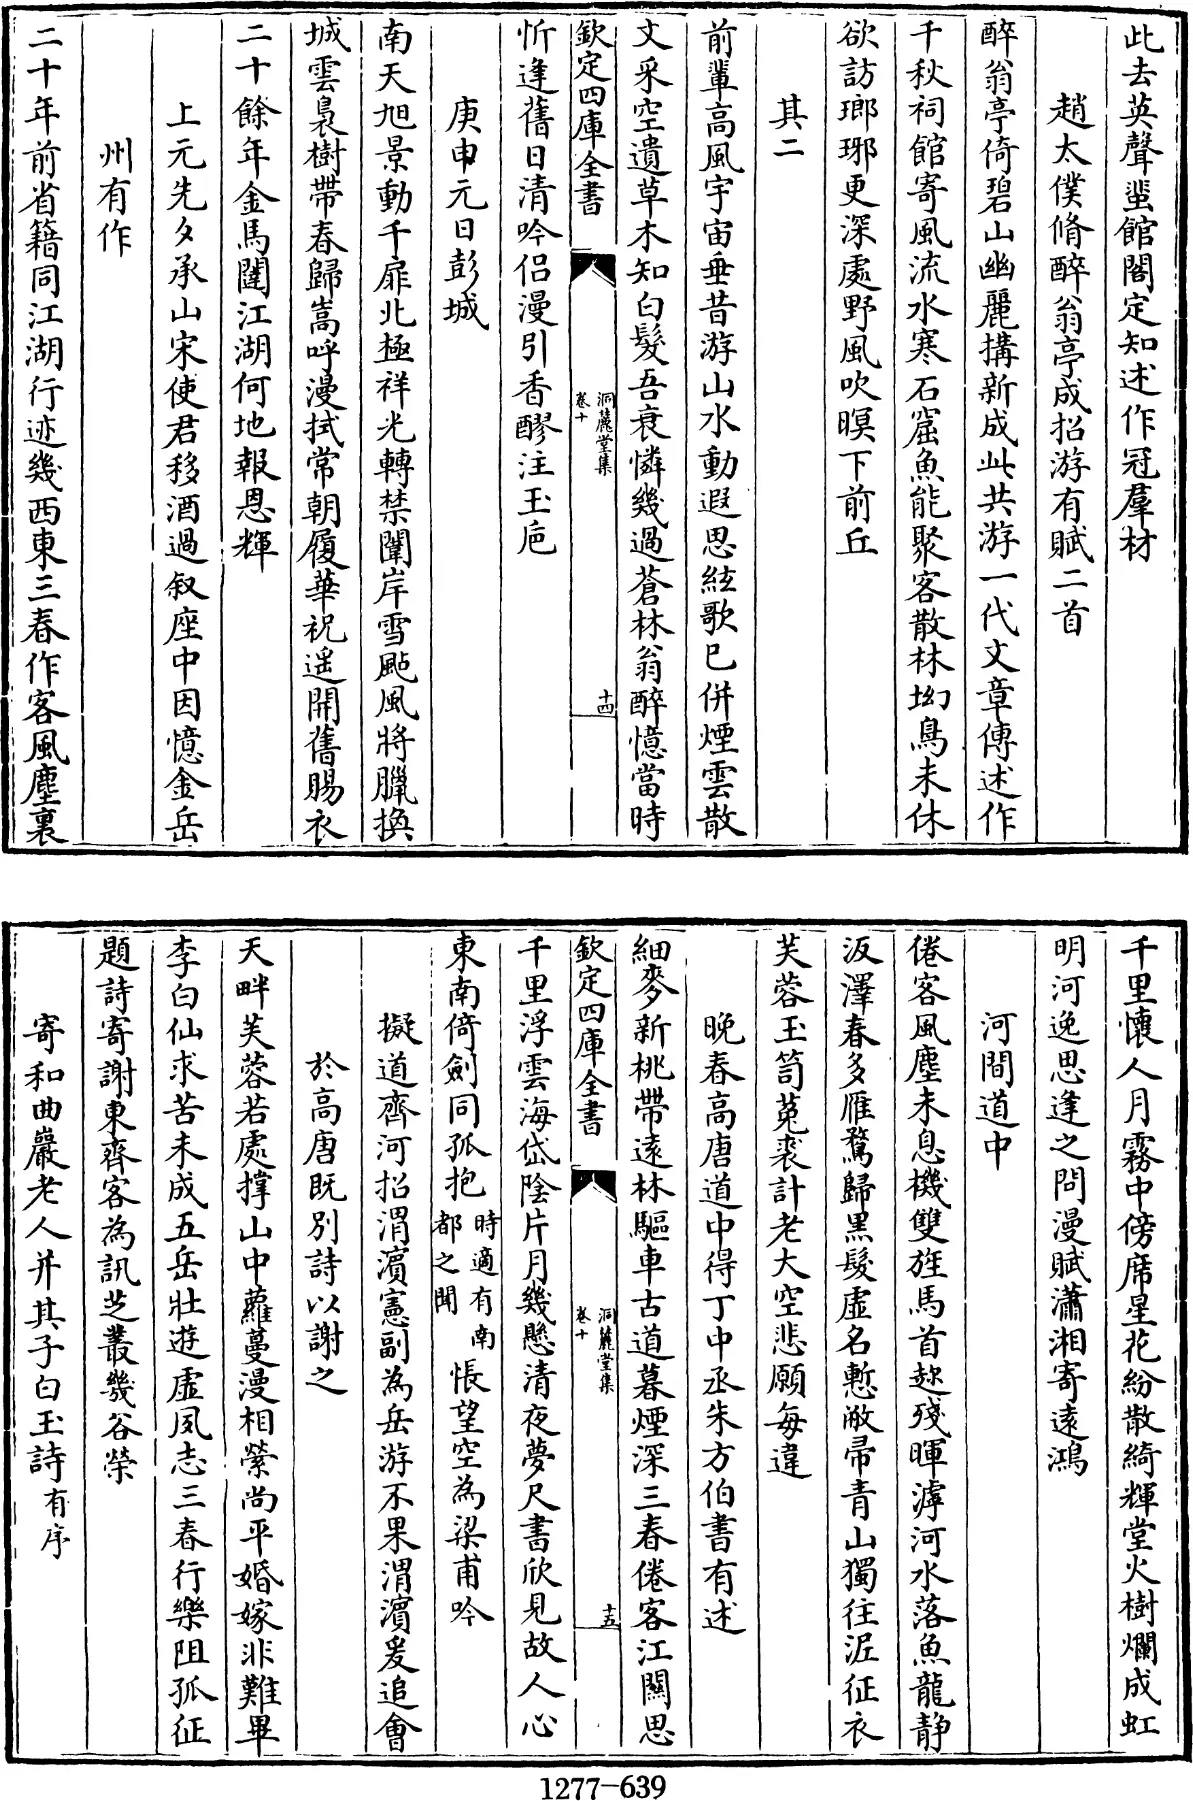 此去英聲蜚館閣定知述作冠羣材
趙太僕脩醉翁亭成招游有賦二首
醉翁亭倚碧山幽麗搆新成此共游一代文章傳述作
千秋祠館寄風流水寒石窟魚能聚客散林坳鳥未休
欲訪瑯琊更深處野風吹暝下前丘
其二
前輩高風宇宙垂昔游山水動遐思絃歌已併煙雲散
文采空遺草木知白髮吾衰憐幾過蒼林翁醉憶當時
欽定四庫全書
洞麓堂集
卷十
十四
忻逢舊日清吟侶漫引香醪注玉卮
庚申元日彭城
南天旭景動千扉北極祥光轉禁闈岸雪颭風將臘換
城雲裊樹帶春歸嵩呼漫拭常朝履華祝遥開舊賜衣
二十餘年金馬闥江湖何地報恩輝
上元先夕承山宋使君移酒過叙座中因憶金岳
州有作
二十年前省籍同江湖行迹幾西東三春作客風塵裏
千里懷人月霧中傍席星花紛散綺輝堂火樹爛成虹
明河逸思逢之問漫賦瀟湘寄遠鴻
河間道中
倦客風塵未息機雙旌馬首趂殘暉滹河水落魚龍静
汳澤春多雁鶩歸黒髮虚名慙敝帚青山獨往泥征衣
芙蓉玉笥菟裘計老大空悲願每違
晚春高唐道中得丁中丞朱方伯書有述
細麥新桃帶遠林驅車古道暮煙深三春倦客江關思
欽定四庫全書
洞麓堂集
卷十
十五
千里浮雲海岱陰片月幾懸清夜夢尺書欣見故人心
東南倚劍同孤抱時適有南都之聞悵望空為梁甫吟
擬道齊河招渭濵憲副為岳游不果渭濵爰追會
於高唐既別詩以謝之
天畔芙蓉若處撑山中蘿蔓漫相縈尚平婚嫁非難畢
李白仙求苦未成五岳壯遊虚夙志三春行樂阻孤征
題詩寄謝東齊客為訊芝叢幾谷榮
寄和曲巖老人并其子白玉詩有序
1277-639